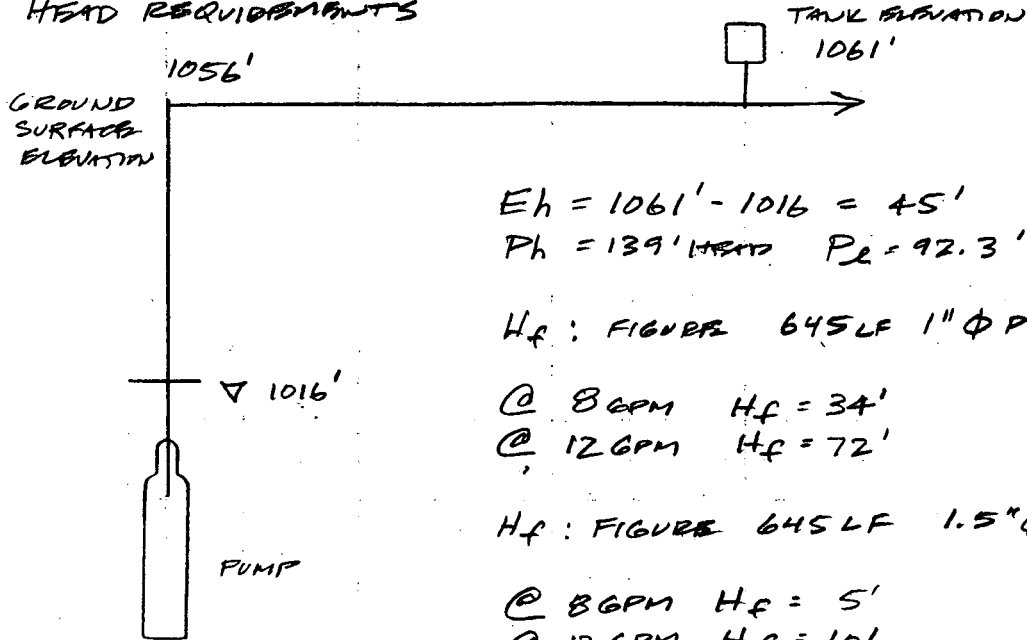 HEAD REQUIREMENTS
TANK ELEVATION
1061'
1056'
GROUND
SURFACE
ELEVATION
Eh = 1061' - 1016 = 45'
Ph = 139' HEAD Pe = 92.3'
Hf : FIGURE 645 LF 1" φ P
@ 8 GPM Hf = 34'
@ 12 GPM Hf = 72'
▽ 1016'
Hf : FIGURE 645 LF 1.5"
PUMP
@ 8 GPM Hf = 5'
@ 12 GPM Hf = 10'